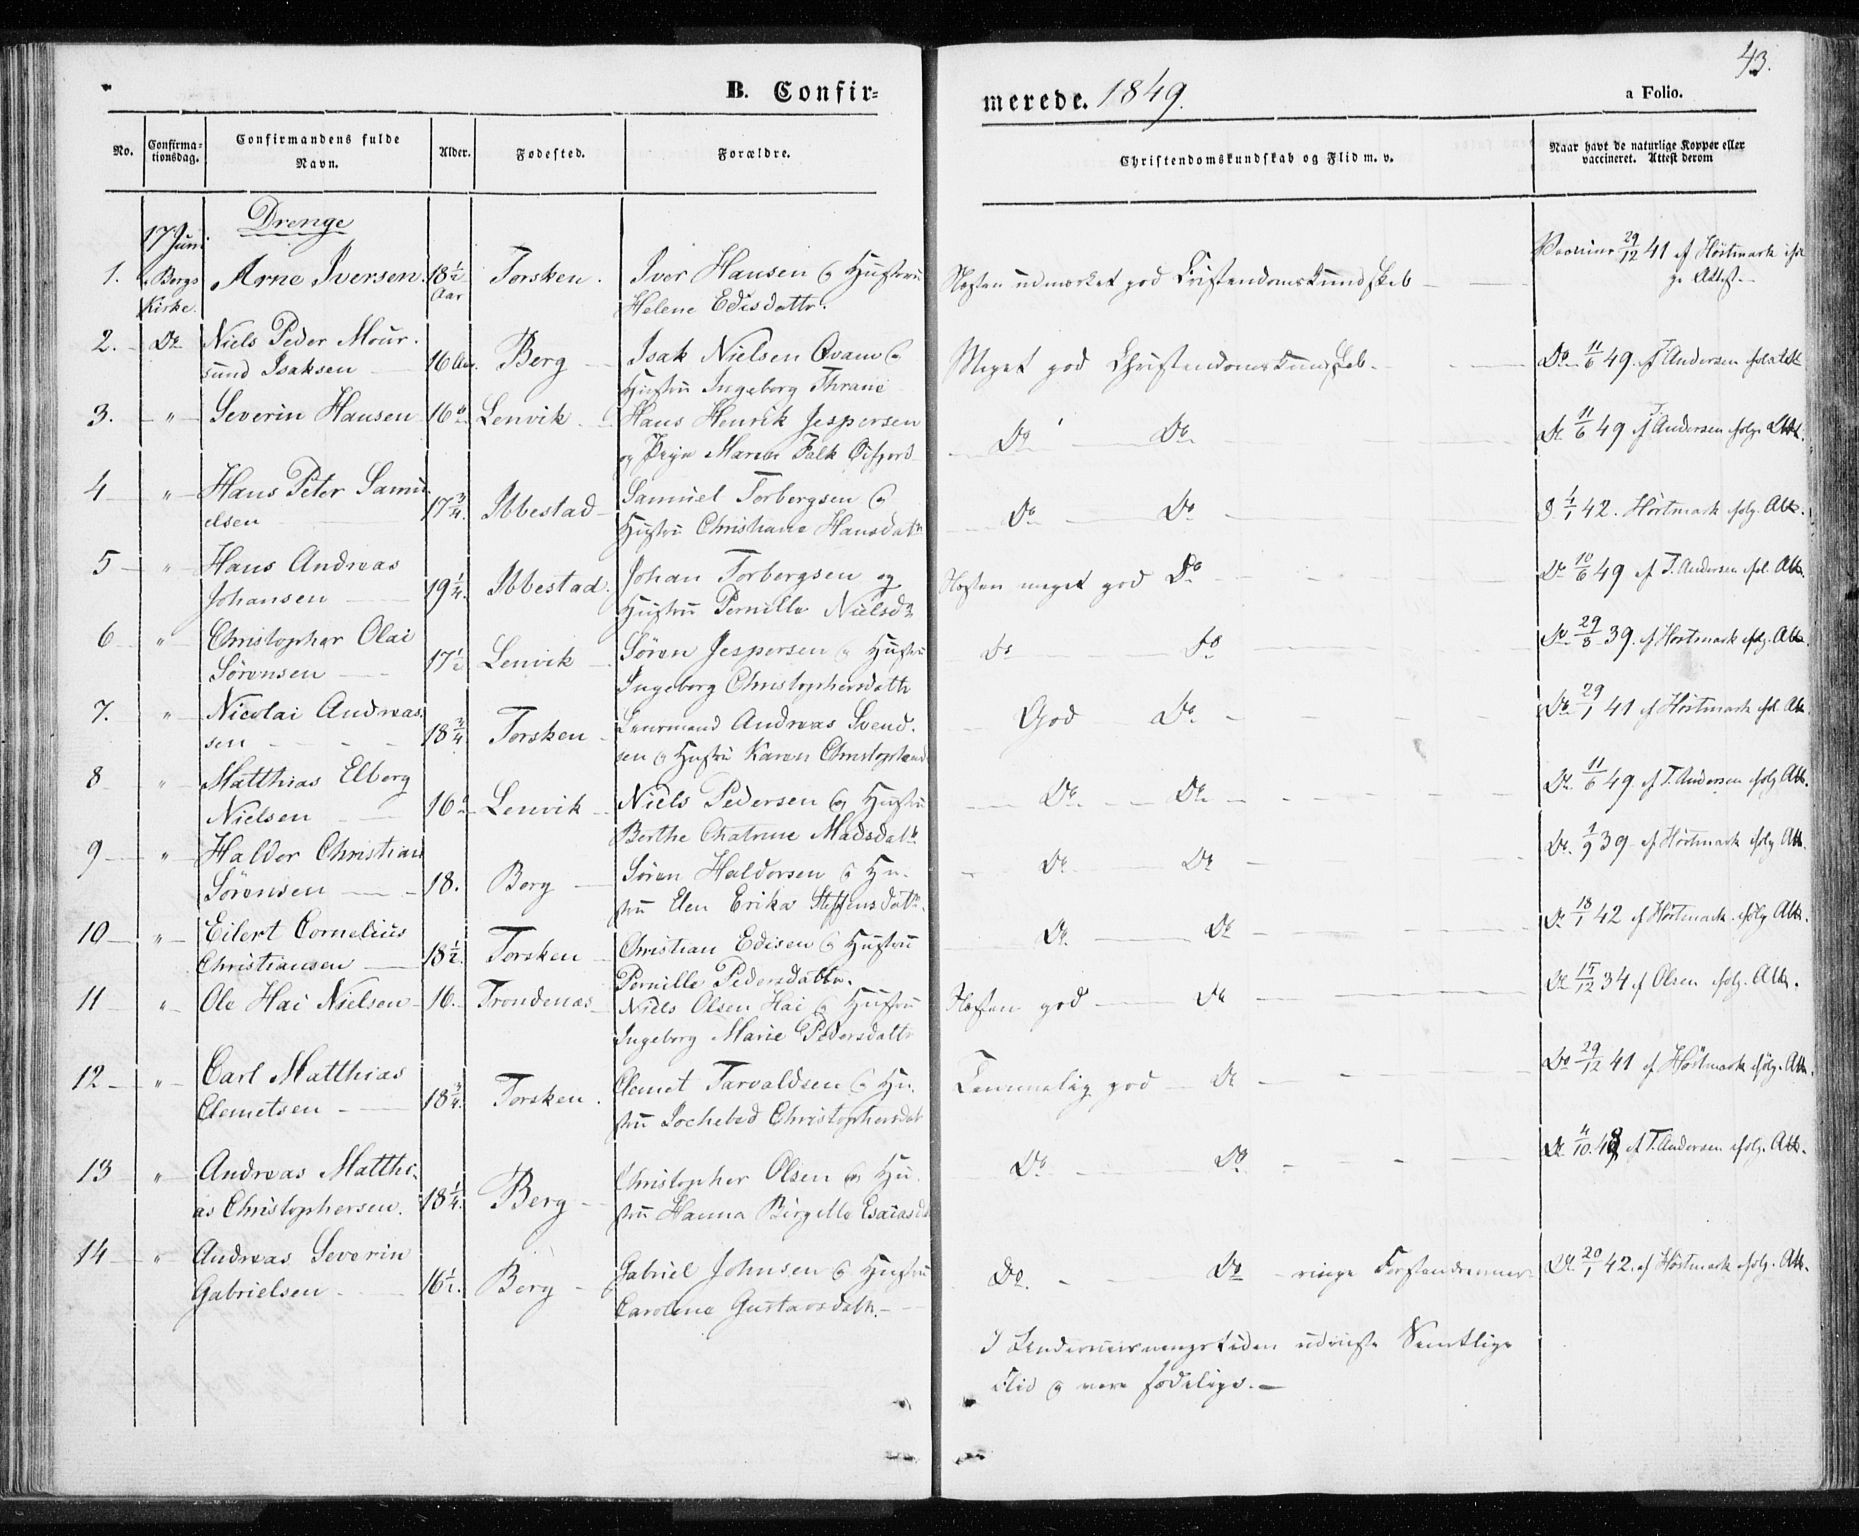 43.
B. Confir-
merede. 1849.
a Folio.
No.
Confirma-
tionsdag.
Confirmandens fulde
Navn.
Alder.
Fødested.
Forældre.
Christendomskundskab og Flid m. v.
Naar havt de naturlige Kopper eller
vaccineret. Attest derom
Drenge
17 Juni
1. Bergs Kirke. Arne Iversen. 18½ Aar Torsken. Iver Hansen og Hustru
Helene Edisdattr.
Næsten udmærket god Cristendomskundskab
Vaccine 29/12 41 af Høstmark
Attest.
2. Do Niels Peder Mour-
sund Isaksen 16 Aar. Berg Isak Nielsen Qvam og
Hustru Ingeborg Thrane
Meget god Christendomskundskab.
Do 11/6 49. af T. Andersen
3. " Severin Hansen 16 Lenvik Hans Henrik Jespersen
og Maren Falk
Do Do
Do 11/6 49 af T. Andersen følg. Att.
4 " Hans Peter Samu-
elsen 17¾. Ibbestad Samuel Torbergsen og
Hustru Christiane Hansdatr
Do Do
42. Høstmark følg. Att.
5 " Hans Andreas
Johansen 19¼. Ibbestad. Johan Torbergsen og
Hustru Pernille Nielsdr
Næsten meget god Do
Do 10/6 49 af T. Andersen følg. Att.
6 " Christopher Olai
Sørensen 17½ Lenvik Søren Jespersen og Hustru
Ingeborg Christophersdattr
do do
Do 29/8 39. af Høstmark følg. Att.
7. " Nicolai Andreas-
sen 18¾ Torsken Andreas Svend-
sen og Hustru Karen
God Do
Do 29/1 41 af Høstmark
8 " Matthias Elberg
Nielsen 16 Lenvik Niels Pedersen og Hustru
Berthe Chatrine Madsdatr
Do Do
Do 11/6 49 af T. Andersen følg Att.
9 " Haldor Christian
Sørensen 18. Berg Søren Haldorsen og Hu-
stru Elen Erika Steffensdatr.
Do Do
Do 39 af Høstmark følg Att.
10 " Eilert Cornelius
Christiansen 18½. Torsken Christian Edisen og Hustru
Pernille Pedersdattr.
Do Do
Do 18/1 42 af Høstmark. følg Att.
11 " Ole Hai Nielsen 16. Trondenæs Niels Olsen Hai og Hustru
Ingeborg Marie Pedersdattr
Næsten god Do
Do 15/12 34 af Olsen følg. Att.
12 " Carl Matthias
Clemetsen 18¾. Torsken. Clemet Tarvaldsen og Hu-
stru Jochebed Christophersdat
Temmelig god Do
Do 29/12 41 af Høstmark følg. Att.
13 " Andreas Matthi-
as Christophersen. 18¼. Berg Christopher Olsen og Hu-
stru Hanna Birgitte Esaiasd
Do Do
Do T. Andersen følg. Att.
14 " Andreas Severin
Gabrielsen 16½. Berg Gabriel Johnsen og Hustru
Caroline Gustavsdatr.
Do. Do ringe Forstandsevner
Do. 20/1 42. af Høstmark følg. Att.
I Underviisningstiden udviste Samtlige
Flid og vare sædelige.